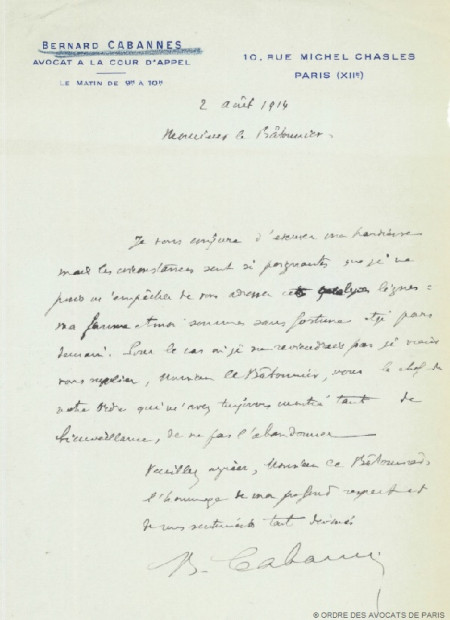 BERNARD CABANNES
AVOCAT A LA COUR D'APPEL
LE MATIN DE 9H A 10H
10, RUE MICHEL CHASLES
PARIS (XIIe)
2 août 1914
Monsieur le Bâtonnier.
Je vous conjure d'excuser ma hardiesse
mais les circonstances sont si poignantes que je ne
puis m'empêcher de vous adresser ces quelques lignes :
ma femme et moi sommes sans fortune et je pars
demain. Pour le cas où je ne reviendrais pas je viens
vous supplier, Monsieur le Bâtonnier, vous le chef de
notre Ordre qui m'avez toujours montré tant de
bienveillance, de ne pas l'abandonner
Veuillez agréer, Monsieur le Bâtonnier,
l'hommage de mon profond respect et
de mes sentiments tout dévoués
B. Cabannes
® ORDRE DES AVOCATS DE PARIS